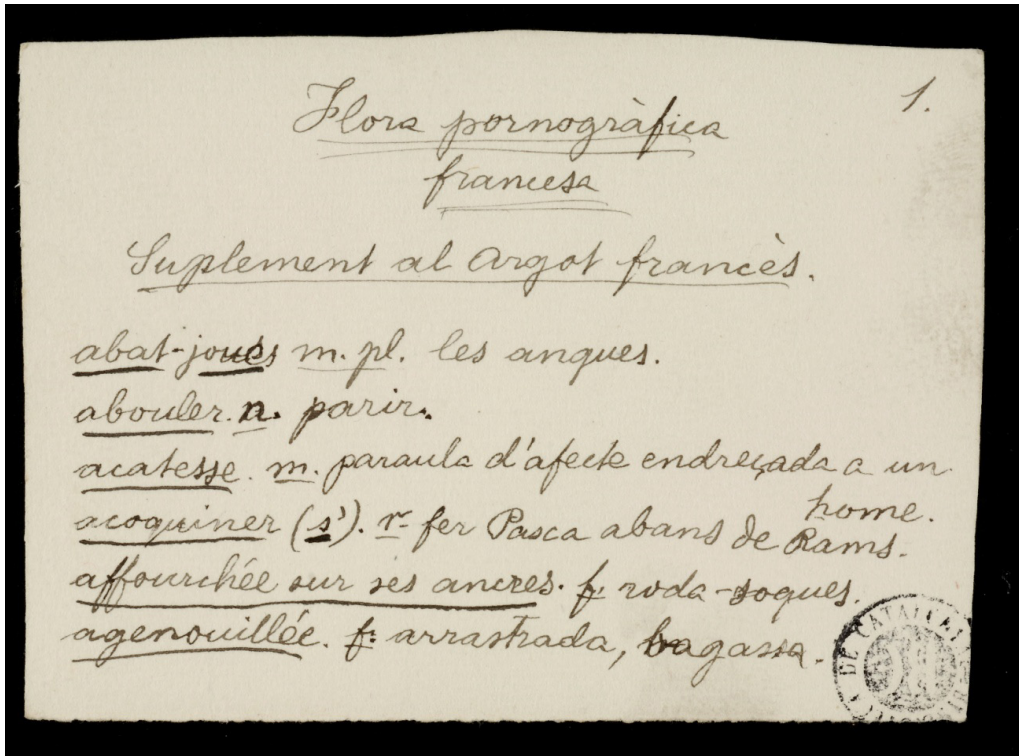 1.
Flora pornogràfica
francesa
Suplement al Argot francès.
abat-joues m. pl. les anques.
abouler. n. parir.
acatesse. m. paraula d'afecte endreçada a un
home.
acoquiner (s'). r. fer Pasca abans de Rams.
affourchée sur ses ancres. f. roda-soques.
agenouillée. f. arrastrada, bagassa.
DE CATALU